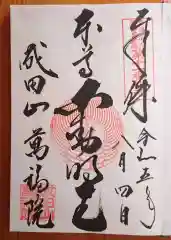 奉拝 令和五年
八月四日
本尊 不動明王
成田山 萬福院